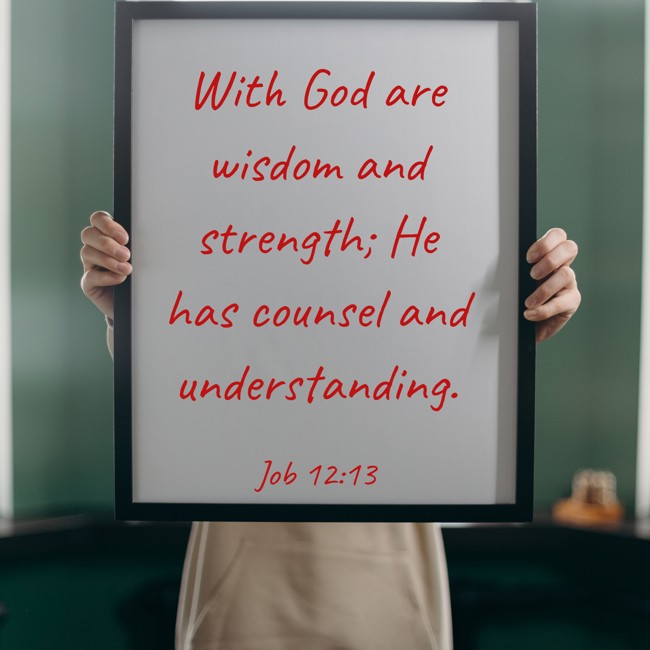 With God are
wisdom and
strength; He
has counsel and
understanding.
Job 12:13